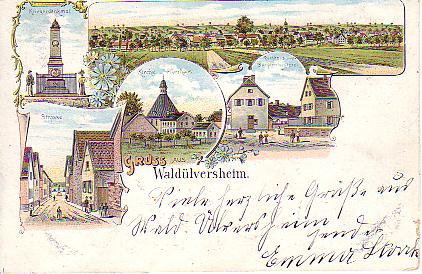 Kriegerdenkmal
Kirche
Strasse
GRUSS AUS
Waldülversheim.
Viele herzliche Grüße aus
Wald Ülversheim
sendet
Emma